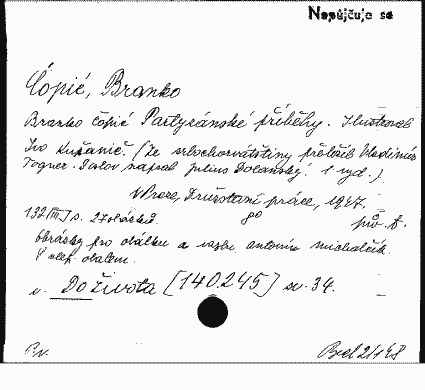 Nepůjčuje se
Ćopić, Branko
Branko Ćopić Partyzánské příběhy. Ilustroval
Ivo Kušanić. (Ze srbochorvatštiny přeložil Vladimír
Togner. Doslov napsal Julius Dolanský. 1 vyd.)
V Praze, Družstevní práce, 1947.
132 [III] s. 8° pův. f.
obrázky pro obálku a vazbu antonín
V obalem.
v. Do života [140.245] sv. 34.
P.v.